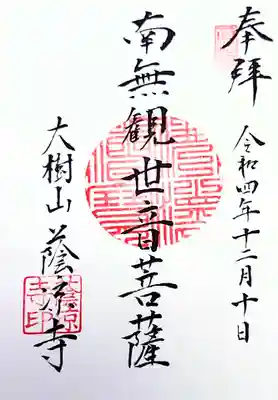 奉拝
令和四年十二月十日
南無観世音菩薩
大樹山 蔭凉寺